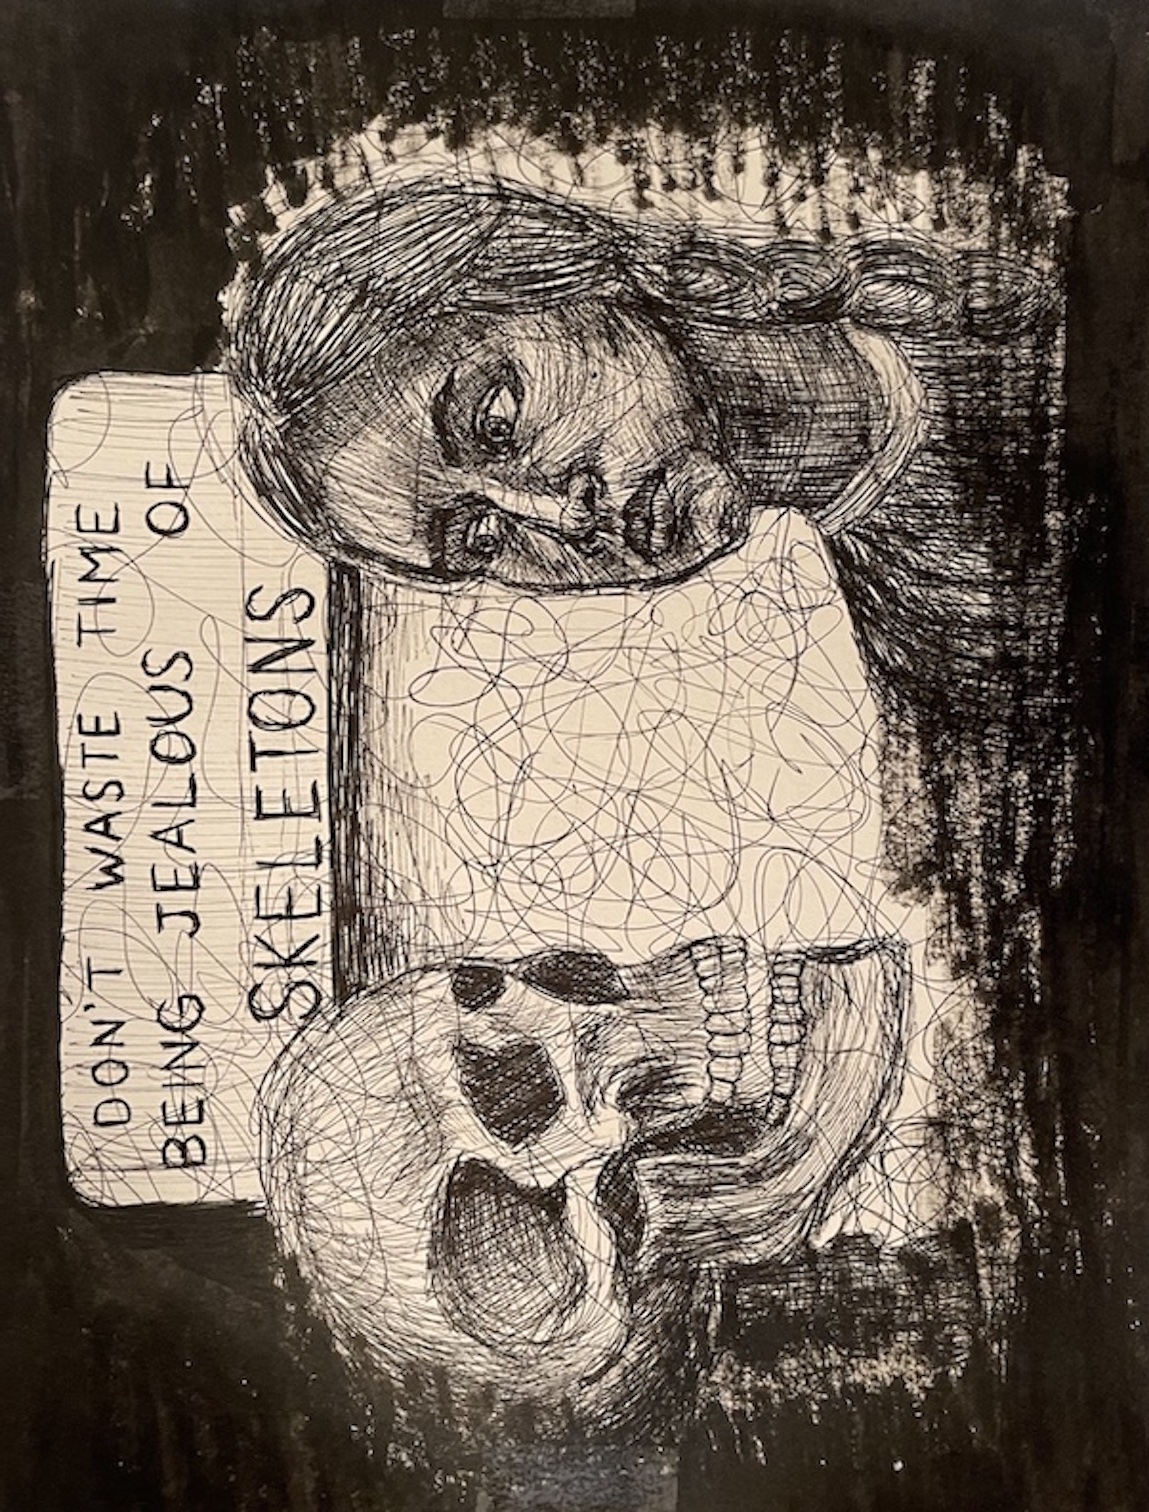 DON'T WASTE TIME
BEING JEALOUS OF
SKELETONS